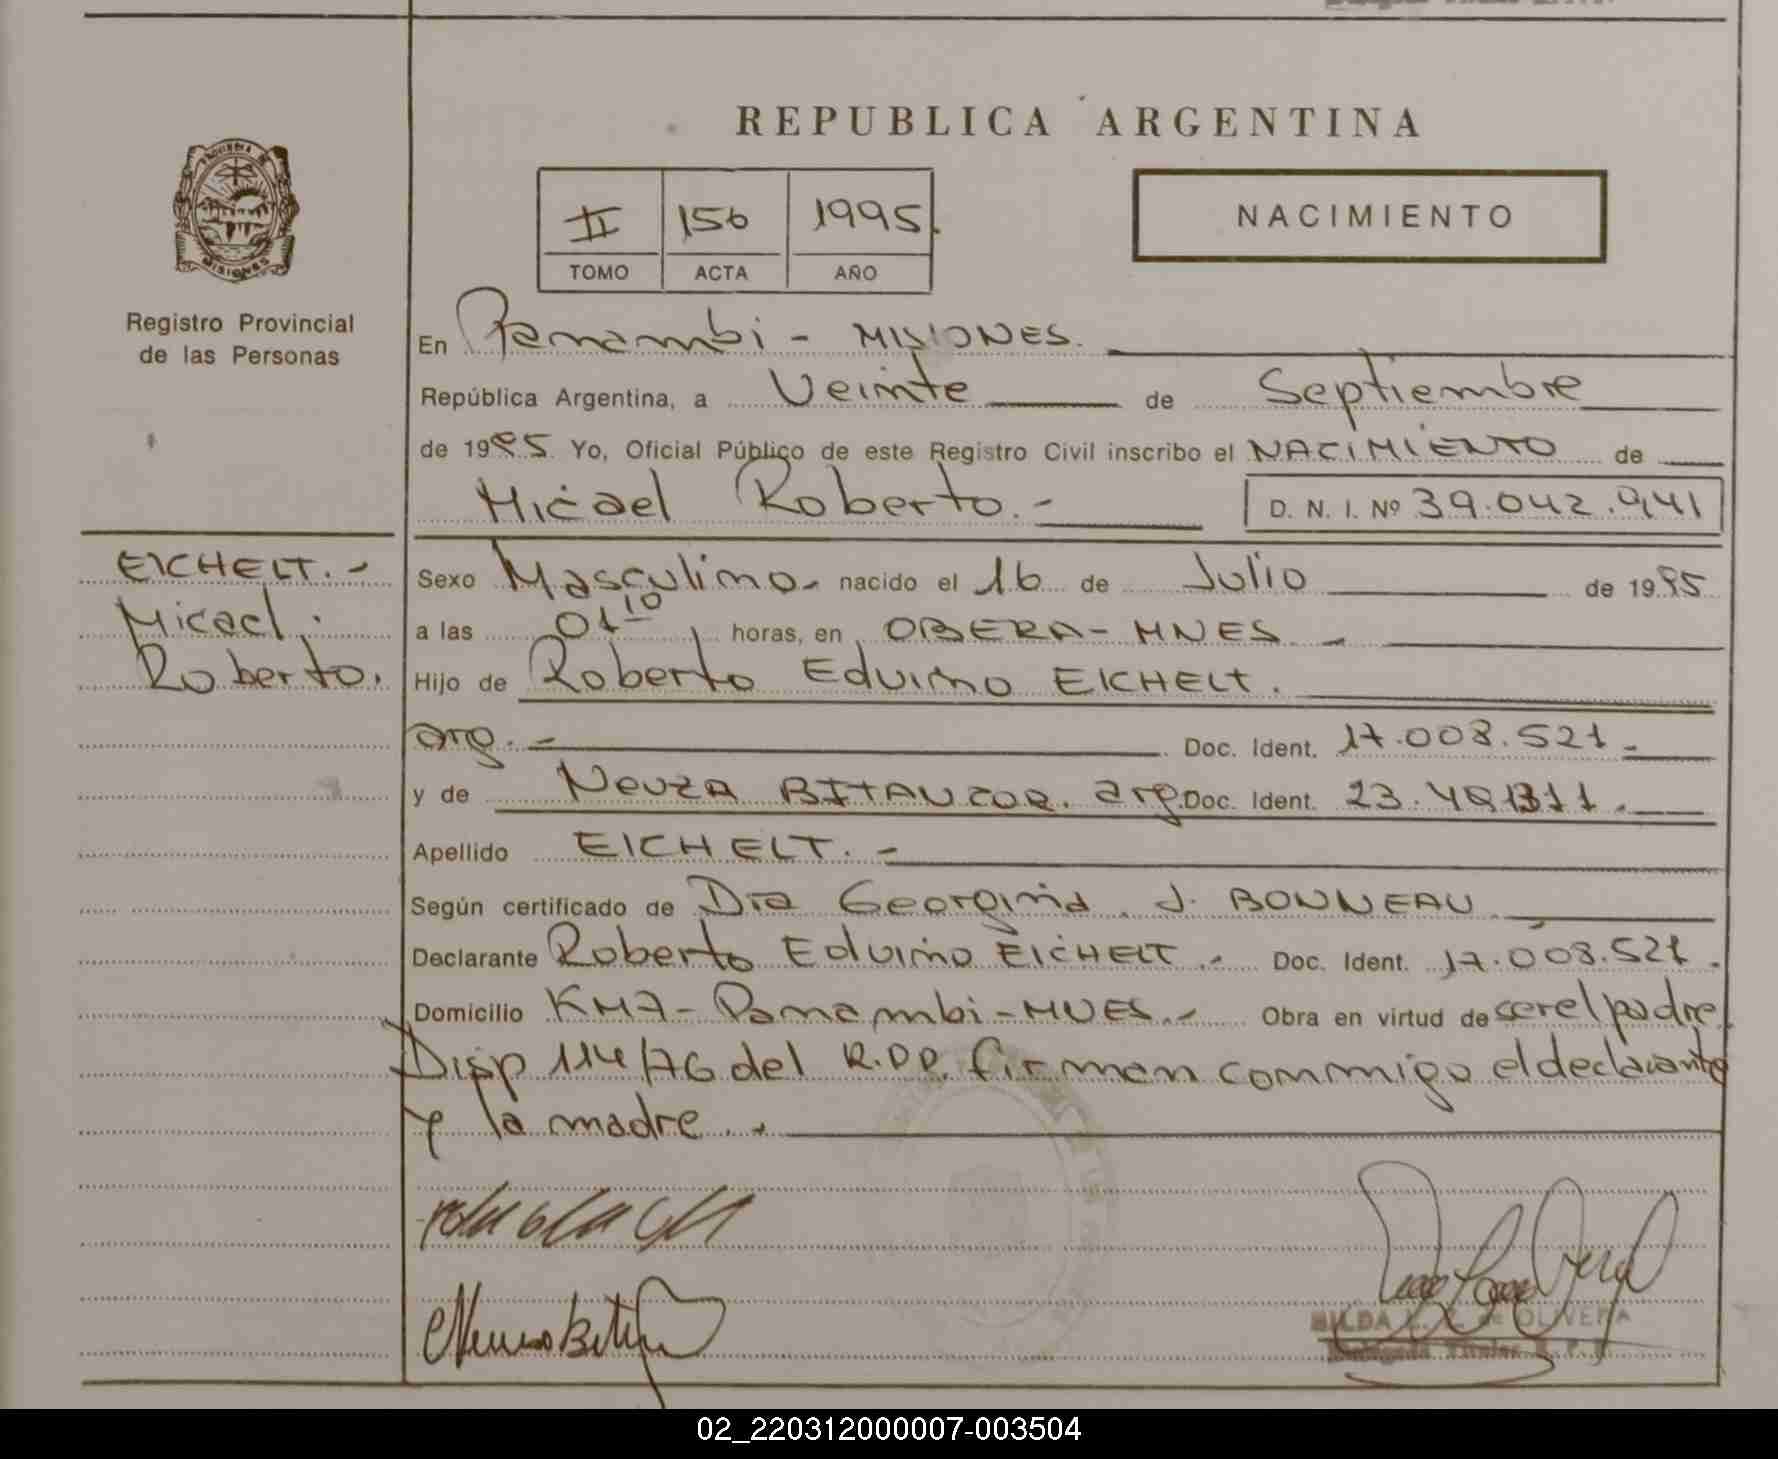 REPUBLICA ARGENTINA
II 156 1995.
TOMO ACTA AÑO
NACIMIENTO
PROVINCIA DE
MISIONES
Registro Provincial
de las Personas
En Panambi - MISIONES.
República Argentina, a Veinte de Septiembre
de 1995 Yo, Oficial Público de este Registro Civil inscribo el NACIMIENTO de
Micael Roberto.-
D. N. I. Nº 39.042.941
EICHELT.-
Micael
Roberto.
Sexo Masculino. nacido el 16 de Julio de 1995
a las 01 10 horas, en OBERA - MNES. -
Hijo de Roberto Eduino EICHELT.
arg. - Doc. Ident. 17.008.521.-
y de Neuza arg. Doc. Ident. 23.
Apellido EICHELT. -
Según certificado de Dra Georgina J. BONNEAU
Declarante Roberto Eduino EICHELT.- Doc. Ident. 17.008.521.
Domicilio KM 7 - Panambi - MNES.- Obra en virtud de ser el padre.
Disp 114/76 del R.P.P. firman conmigo el declarante
y la madre. -
HILDA L. de OLIVERA
Delegada Titular R. P. P.
02_220312000007-003504